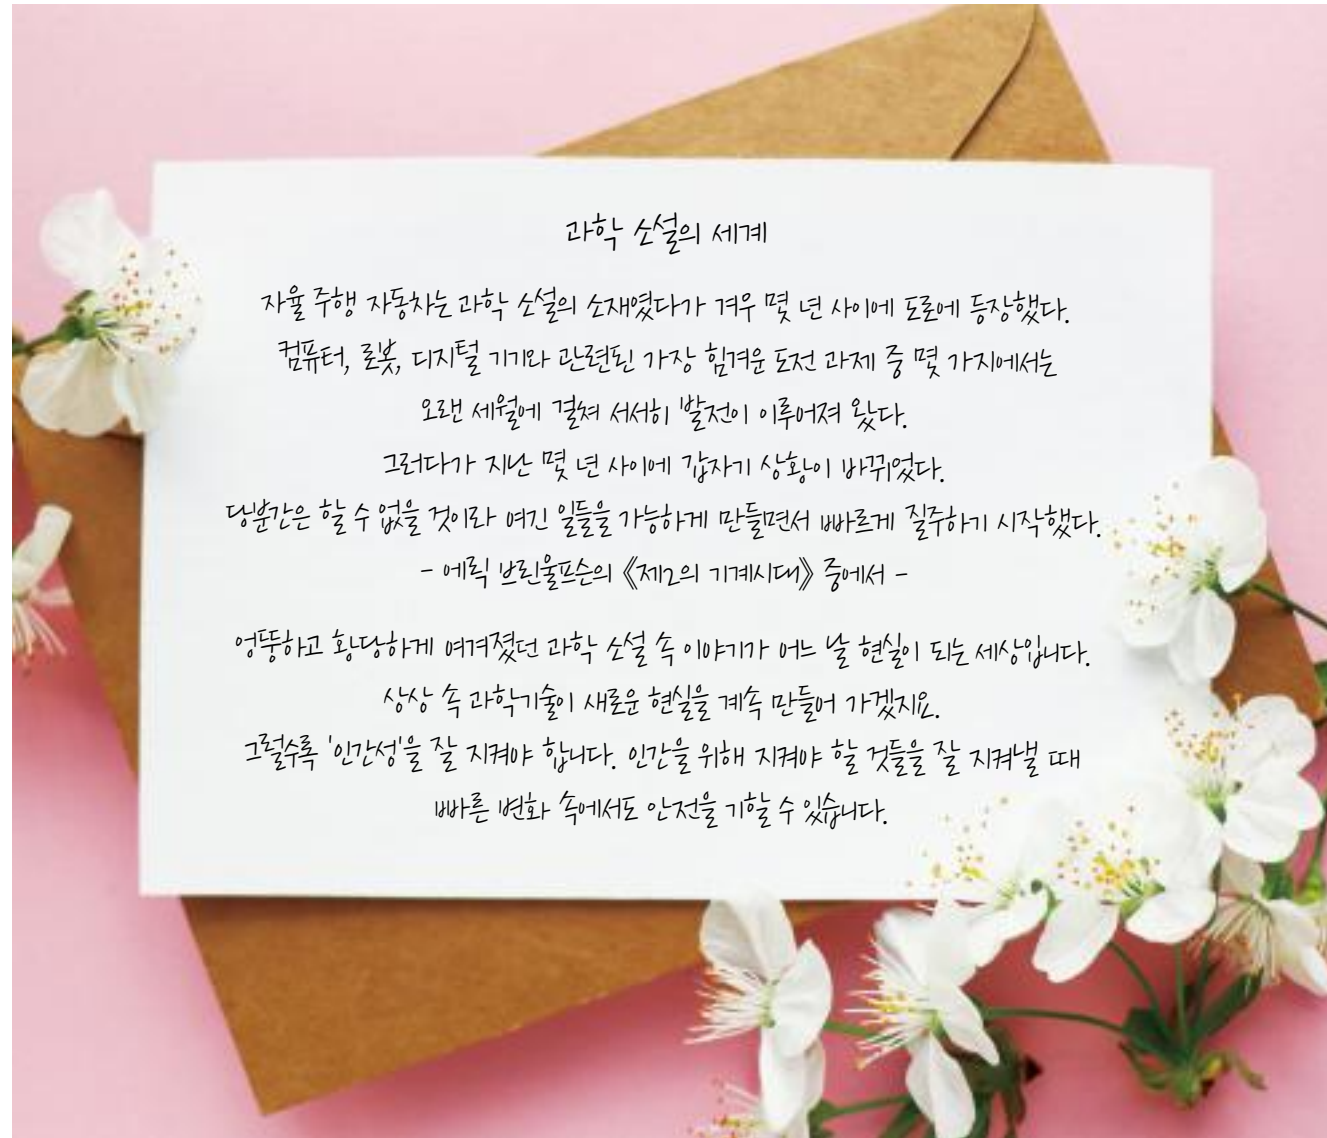 과학 소설의 세계
자율 주행 자동차는 과학 소설의 소재였다가 겨우 몇 년 사이에 도로에 등장했다.
컴퓨터, 로봇, 디지털 기기와 관련된 가장 힘겨운 도전 과제 중 몇 가지에서는
오랜 세월에 걸쳐 서서히 발전이 이루어져 왔다.
그러다가 지난 몇 년 사이에 갑자기 상황이 바뀌었다.
당분간은 할 수 없을 것이라 여긴 일들을 가능하게 만들면서 빠르게 질주하기 시작했다.
- 에릭 브린욜프슨의 《제2의 기계시대》 중에서 -
엉뚱하고 황당하게 여겨졌던 과학 소설 속 이야기가 어느 날 현실이 되는 세상입니다.
상상 속 과학기술이 새로운 현실을 계속 만들어 가겠지요.
그럴수록 '인간성'을 잘 지켜야 합니다. 인간을 위해 지켜야 할 것들을 잘 지켜낼 때
빠른 변화 속에서도 안전을 기할 수 있습니다.